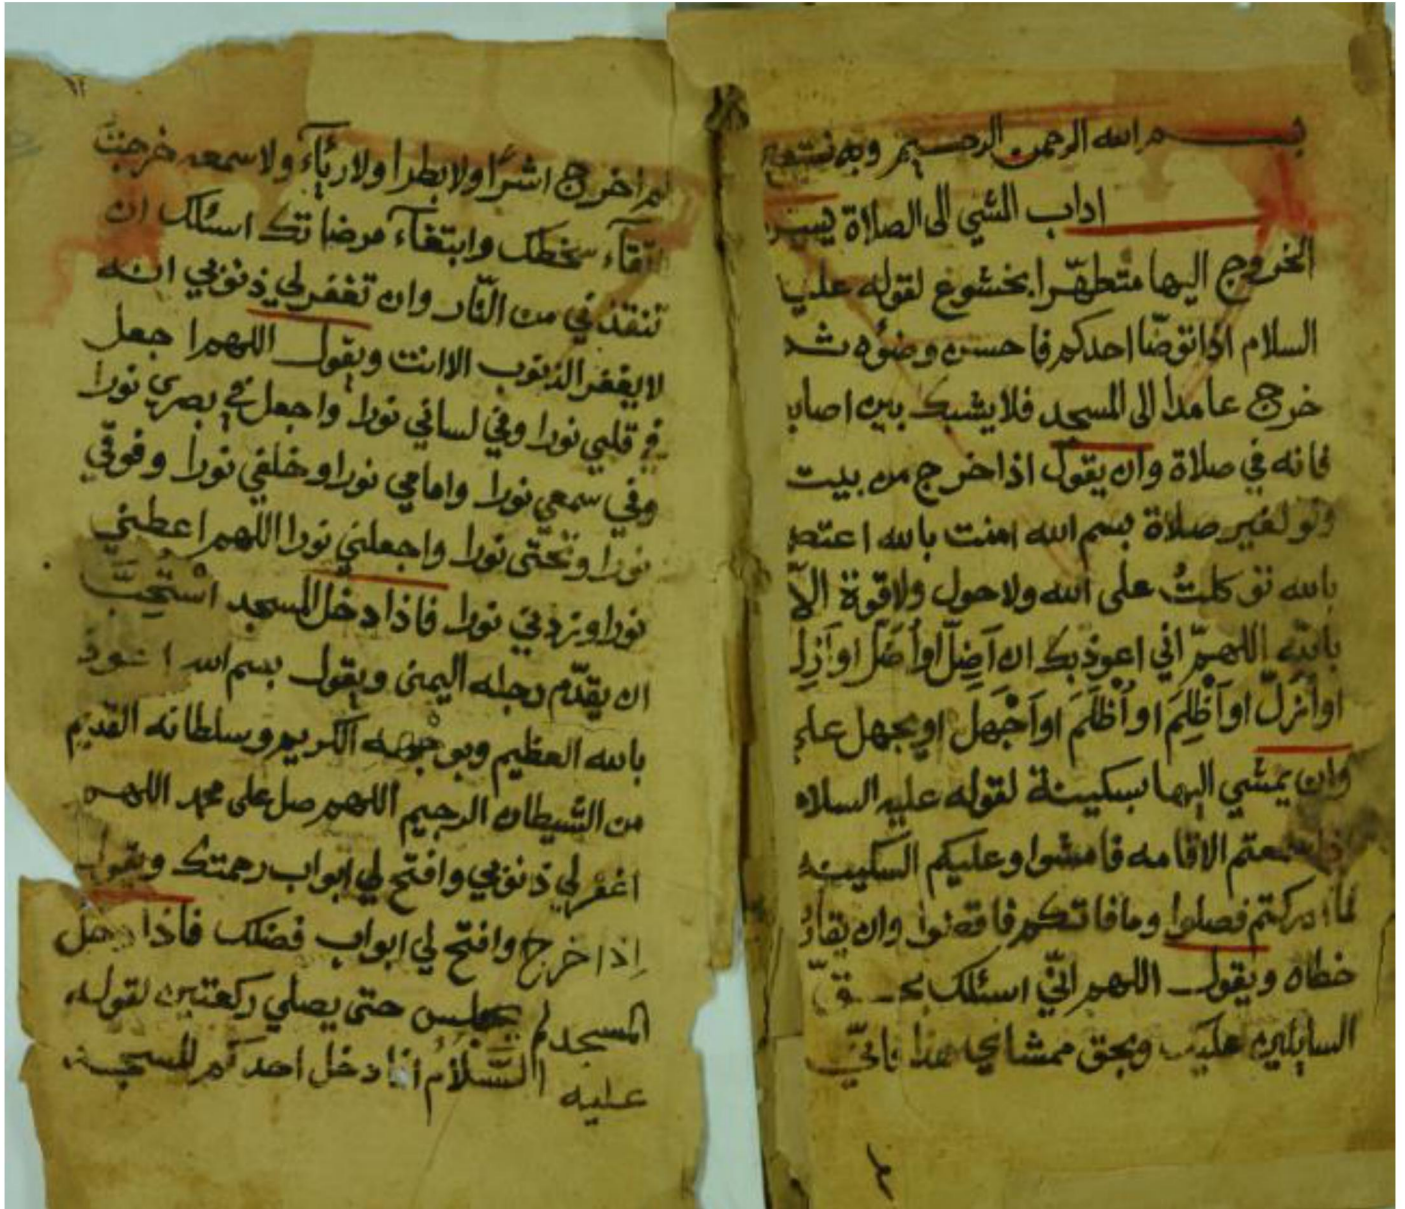 بسم الله الرحمن الرحيم وبه نستعين
اداب المشي الى الصلاة يسن
الخروج اليها متطهّرا بخشوع لقوله عليه
السلام اذا توضّا احدكم فاحسن وضؤه ثم
خرج عامدا الى المسجد فلا يشبك بين اصابـ
فانه في صلاة وان يقول اذا خرج من بيت
ولو لغير صلاة بسم الله امنت بالله اعتصـ
بالله توكلتُ على الله ولا حول ولا قوة الّا
بالله اللهمّ اني اعوذ بك ان اَضِلّ اواُضَلّ اوازِلّ
اواُزلّ اواَظْلِمَ اواُظْلَمَ اواَجْهل او يجهل علي
وان يمشي اليها بسكينة لقوله عليه السلام
اذا سمعتم الاقامه فامشوا وعليكم السكينه
فما ادركتم فصلوا وما فاتكم فاقضوا وان يقار
خطاه ويقول اللهم انّي اسئلك بحقّ
السايلين عليك وبحق ممشاي هذا فانيّ
لم اخرج اشرًا ولا بطرا ولا ريآءً ولا سمعه خرجت
اتقآء سخطك وابتغآء مرضاتك اسئلك ان
تنقذني من النّار وان تغفر لي ذنوبي انه
لا يغفر الذنوب الا انت ويقول اللهم اجعل
في قلبي نورا وفي لساني نورا واجعل في بصري نورا
وفي سمعي نورا وامامي نورا وخلفي نورا وفوقي
نورا وتحتى نورا واجعلني نورا اللهم اعطني
نورا وزدني نورا فاذا دخل المسجد اسْتُحِبَّ
ان يقدّم رجله اليمنى ويقول بسم الله اعوذ
بالله العظيم وبوجهه الكريم وسلطانه القديم
من الشّيطان الرجيم اللهم صل على محمد اللهم
اغفر لي ذنوبي وافتح لي ابواب رحمتك ويقول
اذا خرج وافتح لي ابواب فضلك فاذا دخل
المسجد لم يجلس حتى يصلي ركعتين لقوله
عليه السّلام اذا دخل احدكم المسجد